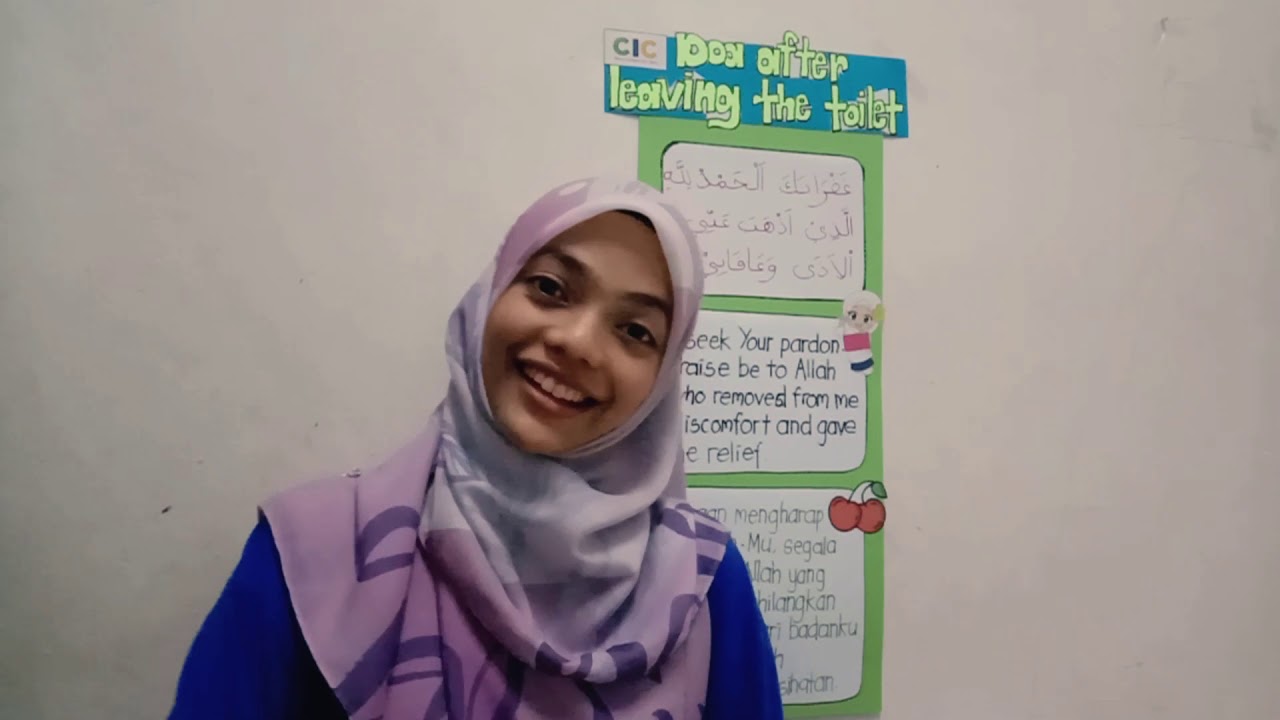 CIC
Doa after
leaving the toilet
غَفْرَانَكَ اَلْحَمْدُ لِلَّهِ
الَّذِيْ اَذْهَبَ عَنِّيْ
اْلاَذَى وَعَافَانِيْ
seek Your pardon
raise be to Allah
ho removed from me
iscomfort and gave
e relief
gan mengharap
-Mu, segala
llah yang
hilangkan
ri badanku
h
sihatan